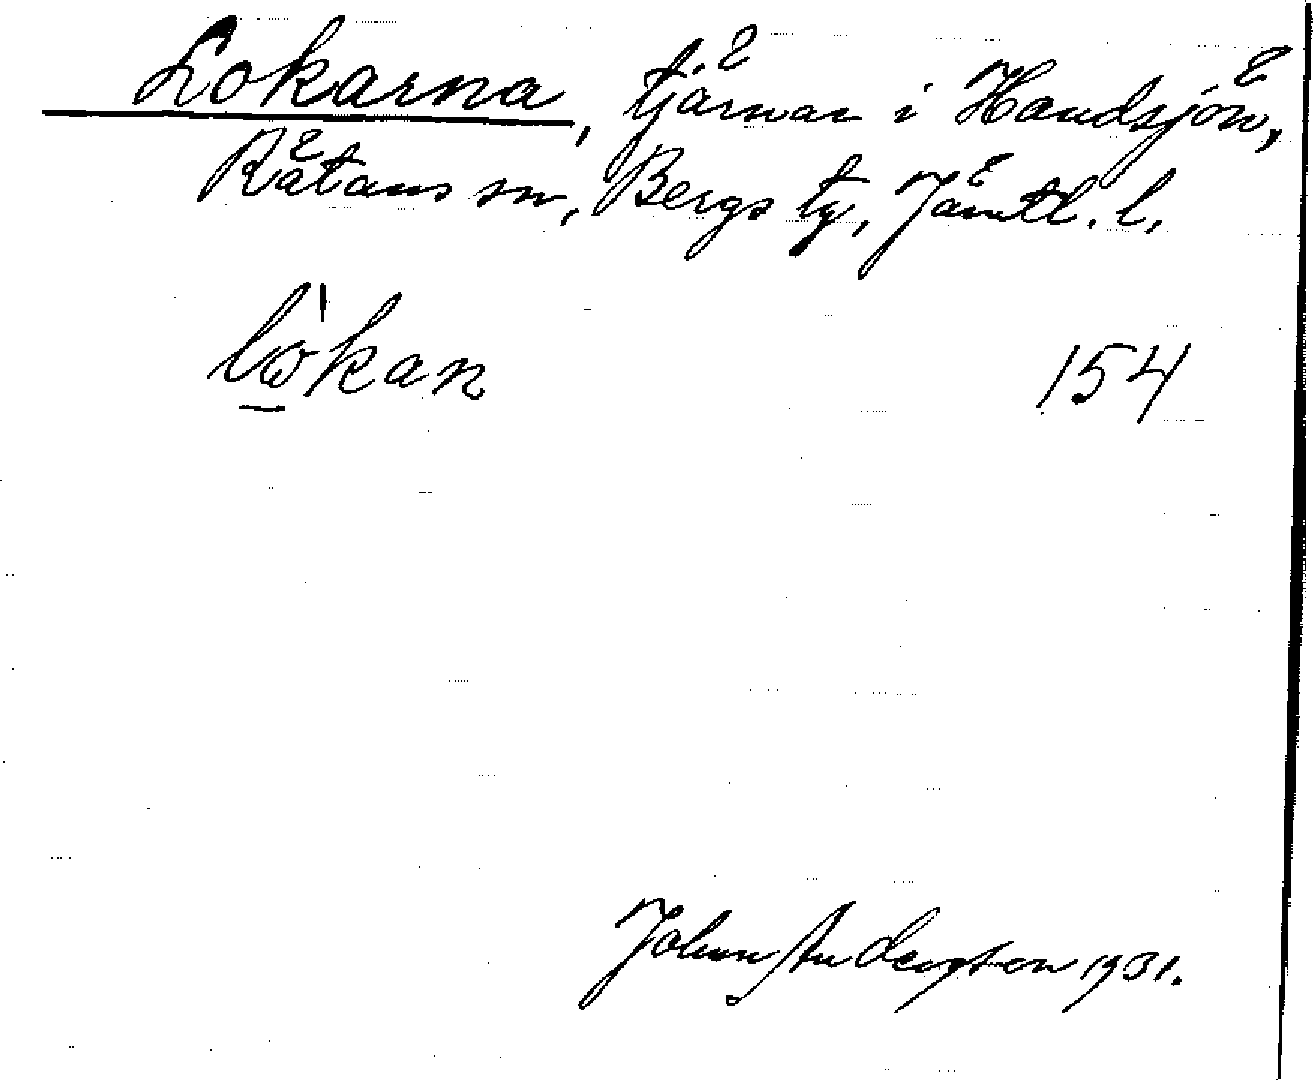 Lokarna, tjärnar i Handsjön,
Rätans sn, Bergs tg, Jämtl. l.
lὼkan 154
John Andersson 1931.